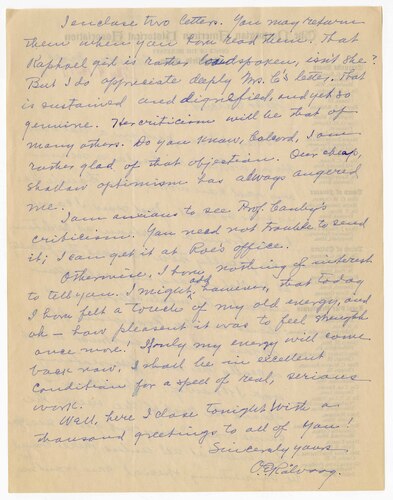 I enclose two letters. You may return
them when you have read them. That
Raphael girl is rather outspoken, isn't she?
But I do appreciate deeply Mrs. C's letter. That
is sustained and dignified, and yet so
genuine. Her criticism will be that of
many others. Do you know, I am
rather glad of that objection. Our cheap,
shallow optimism has always angered
me.
I am anxious to see Prof. Canby's
criticism. You need not trouble to send
it; I can get it at Roe's office.
Otherwise, I have nothing of interest
to tell you. I might add, however, that today
I have felt a touch of my old energy, and
oh — how pleasant it was to feel strength
once more! If only my energy will come
back now, I shall be in excellent
condition for a spell of real, serious
work.
Well, here I close tonight with a
thousand greetings to all of you!
Sincerely yours
O. E. Rölvaag.